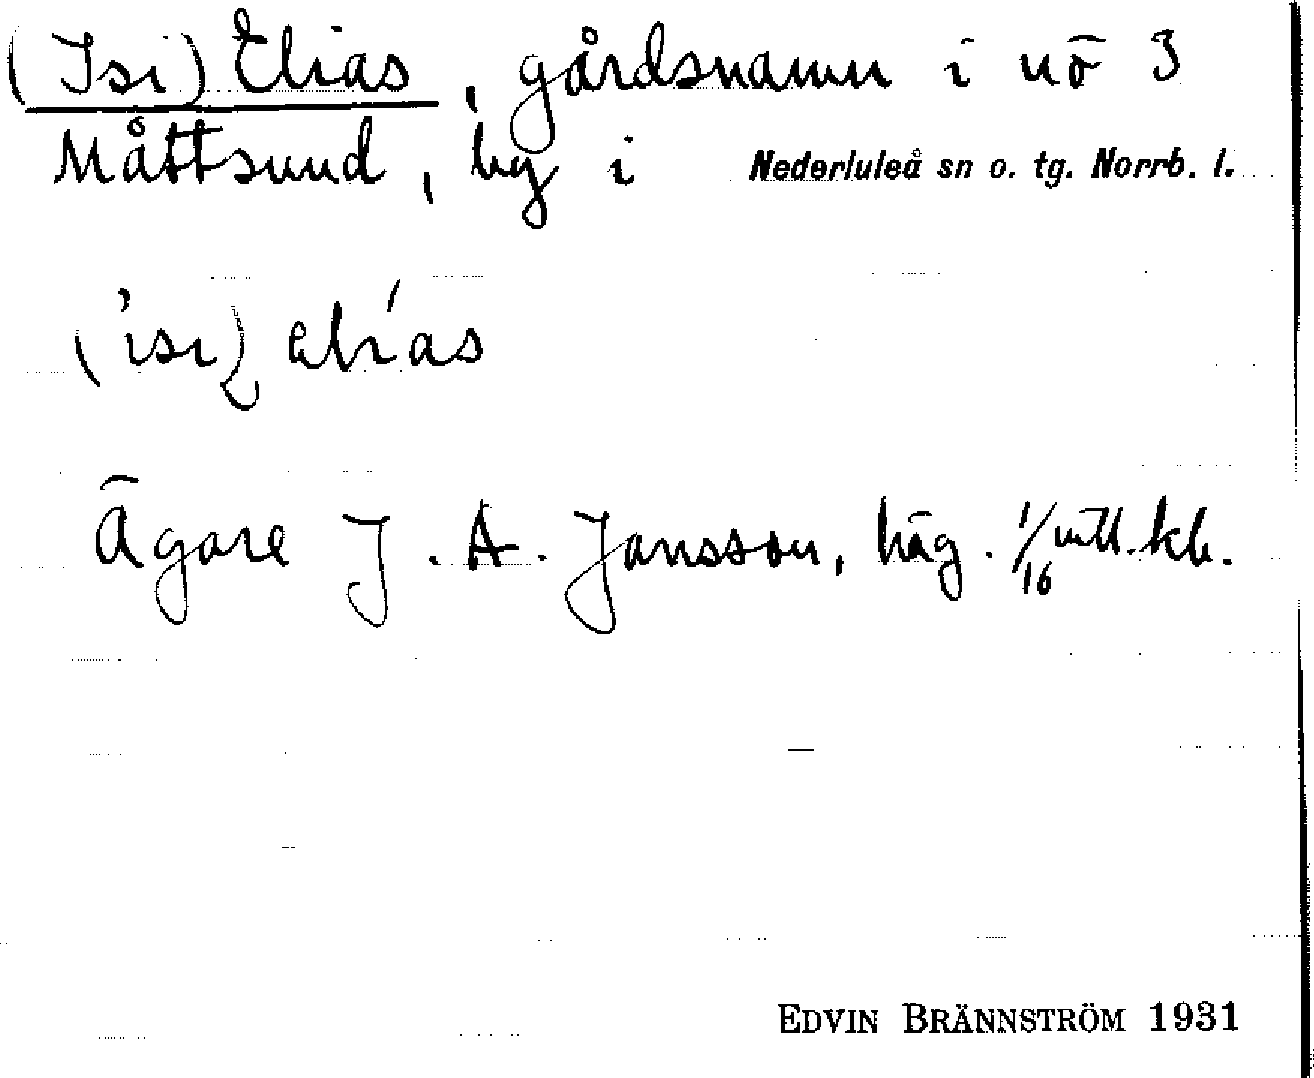 (Isi) Elias, gårdsnamn i nö 3
Måttsund, by i Nederluleå sn o. tg. Norrb. l.
Ägare J. A. Jansson, häg. 1/16 mtl. kb.
EDVIN BRÄNNSTRÖM 1931